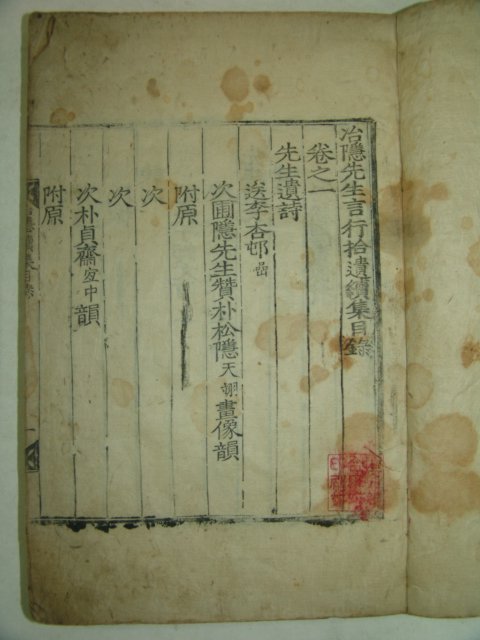 冶隱先生言行拾遺續集目錄
卷之一
先生遺詩
送李杏邨嵒
次圃隱先生贊朴松隱天翊畫像韻
附原
次
次
次朴貞齋宜中韻
附原